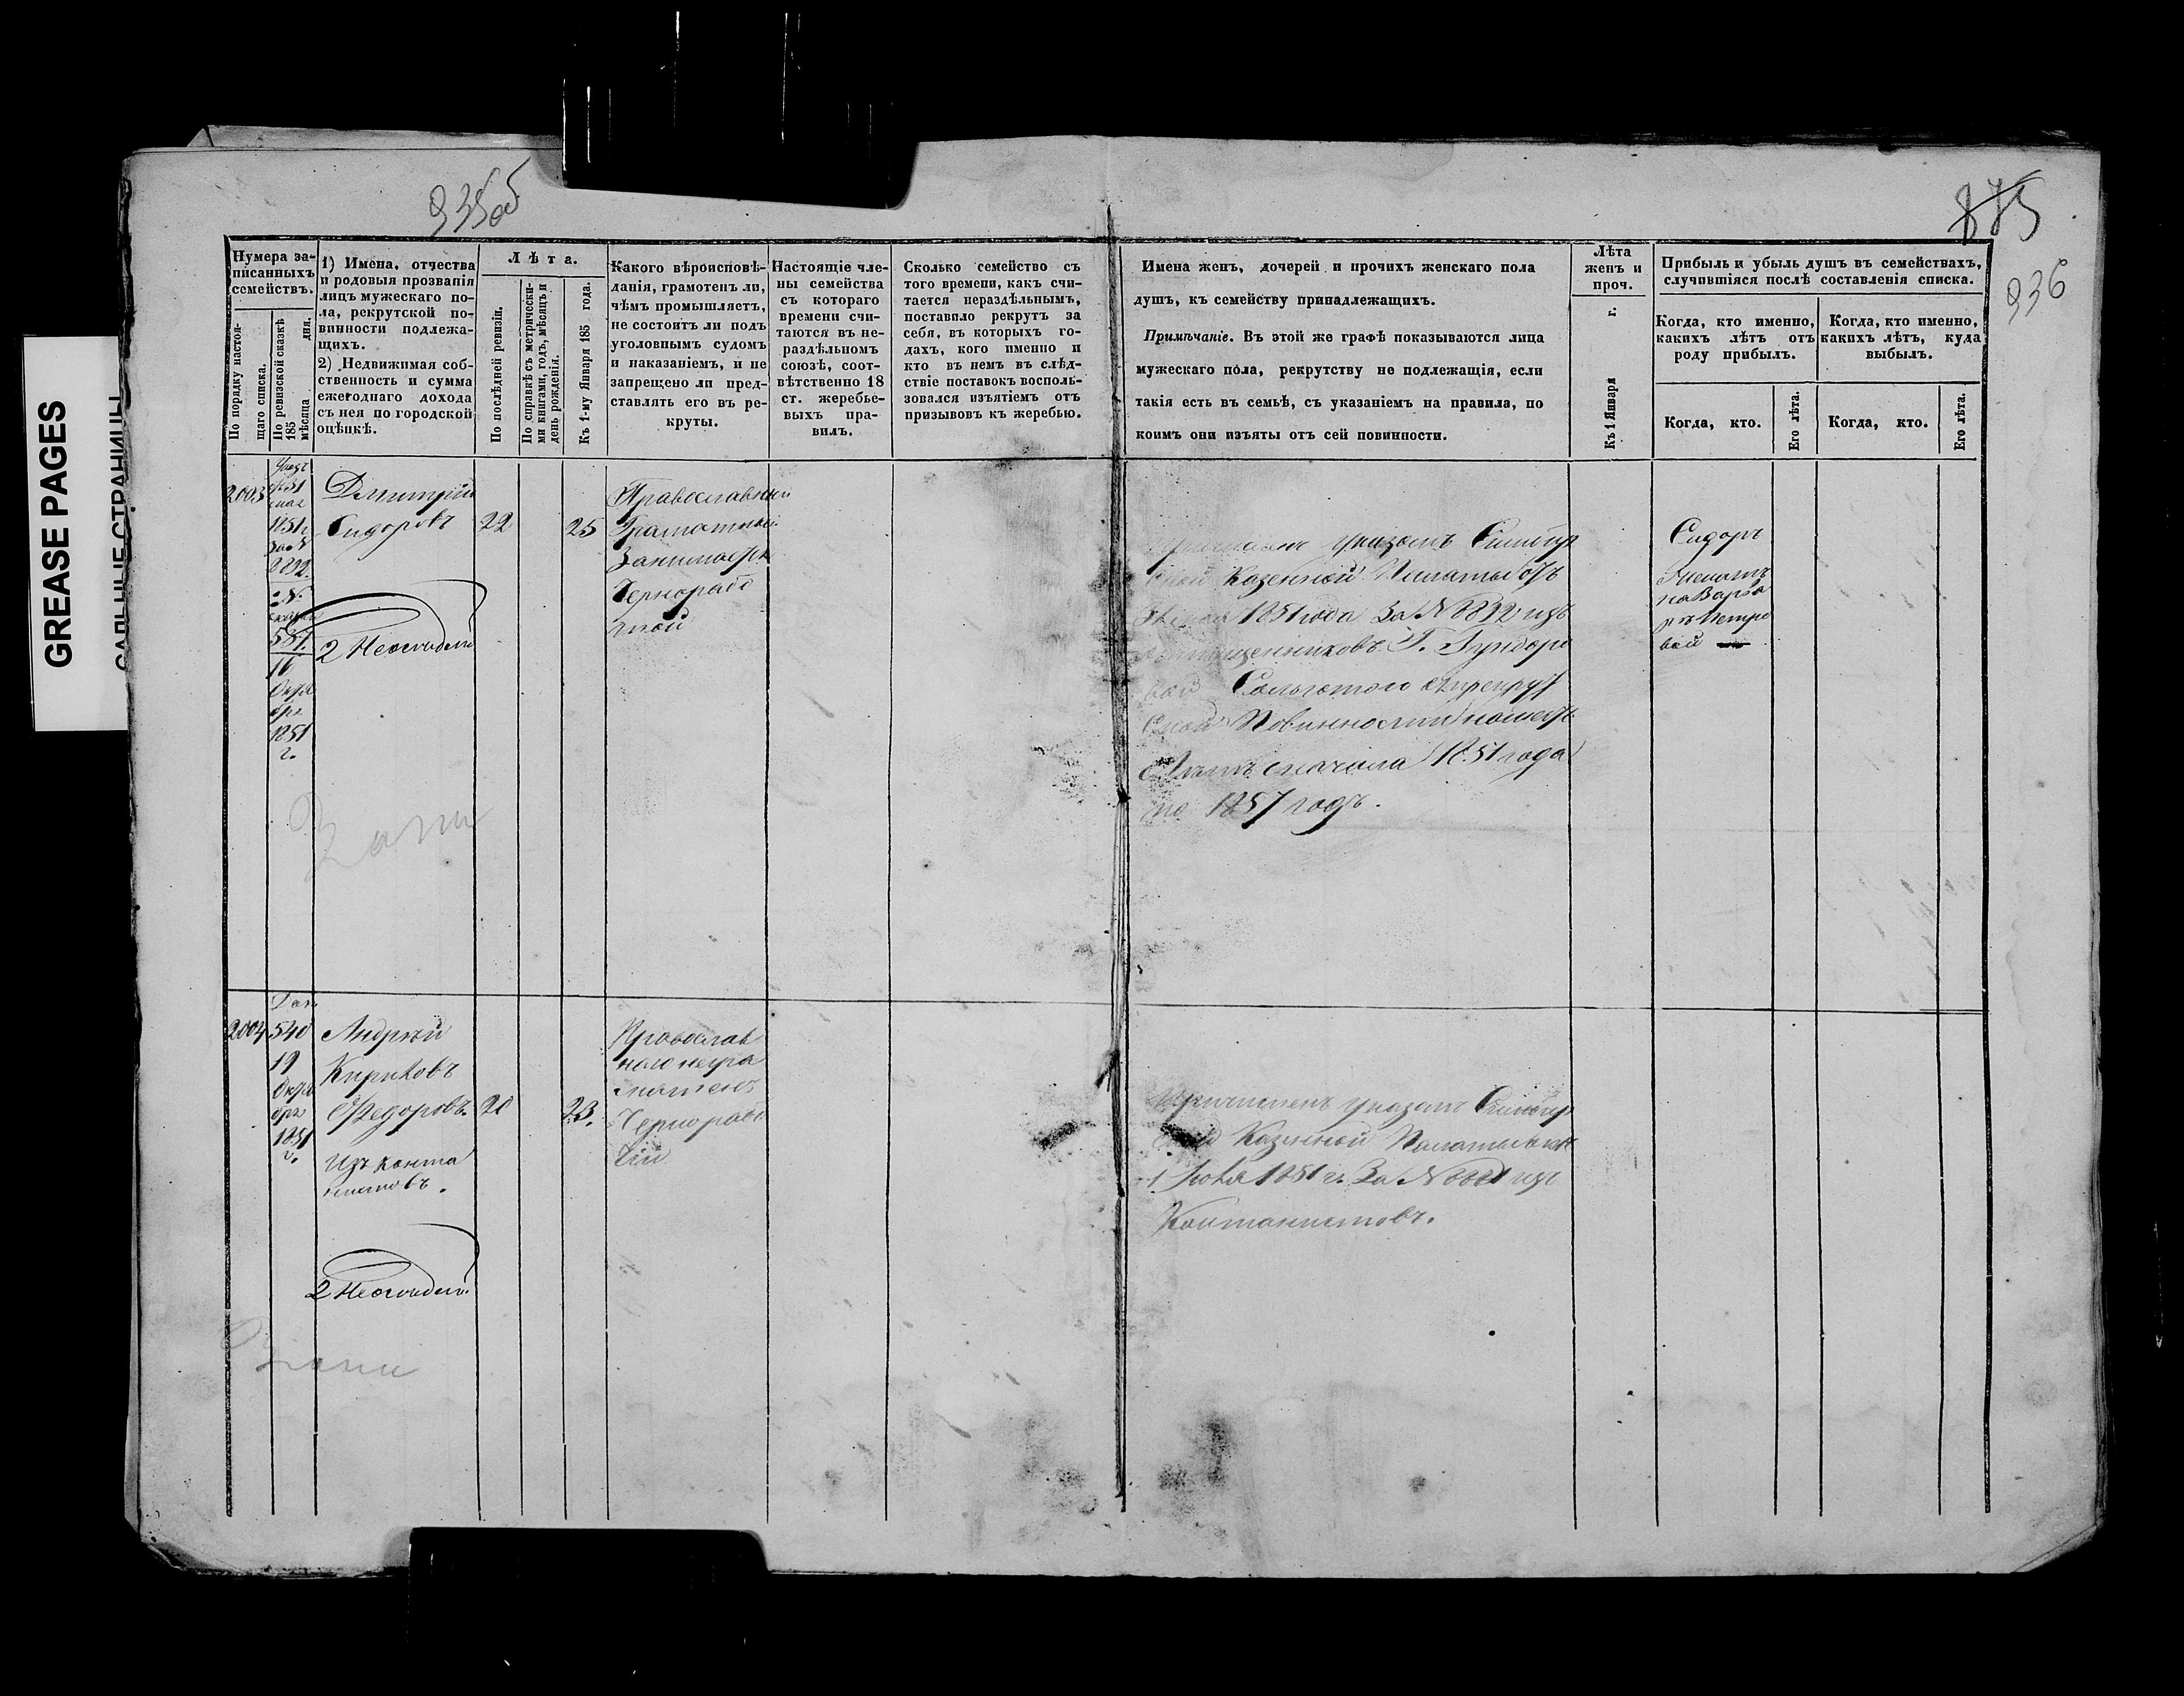 GREASE PAGES
САЛЬНЫЕ СТРАНИЦЫ
935об
875
936
Нумера за-
писанныхъ
семействъ.
По порядку настоя-
щаго списка.
По ревизской сказкѣ
185 дня.
мѣсяца
1) Имена, отчества
и родовыя прозванія
лицъ мужескаго по-
ла, рекрутской по-
винности подлежа-
щихъ.
2) Недвижимая соб-
ственность и сумма
ежегоднаго дохода
съ нея по городской
оцѣнкѣ.
Лѣта.
По послѣдней ревизіи.
По справкѣ съ метрически-
ми книгами, годъ, мѣсяцъ и
день рожденія.
Къ 1-му Января 185 года.
Какого вѣроисповѣ-
данія, грамотенъ ли,
чѣмъ промышляетъ,
не состоитъ ли подъ
уголовнымъ судомъ
и наказаніемъ, и не
запрещено ли пред-
ставлять его въ ре-
круты.
Настоящіе чле-
ны семейства
съ котораго
времени счи-
таются въ не-
раздѣльномъ
союзѣ, соот-
вѣтственно 18
ст. жеребье-
выхъ пра-
вилъ.
Сколько семейство съ
того времени, какъ счи-
тается нераздѣльнымъ,
поставило рекрутъ за
себя, въ которыхъ го-
дахъ, кого именно и
кто въ немъ въ слѣд-
ствіе поставокъ восполь-
зовался изъятіемъ отъ
призывовъ къ жеребью.
Имена женъ, дочерей и прочихъ женскаго пола
душъ, къ семейству принадлежащихъ.
Примѣчаніе. Въ этой же графѣ показываются лица
мужескаго пола, рекрутству не подлежащія, если
такія есть въ семьѣ, съ указаніемъ на правила, по
коимъ они изъяты отъ сей повинности.
Лѣта
женъ и
проч.
Къ 1 Января г.
Прибыль и убыль душъ въ семействахъ,
случившіяся послѣ составленія списка.
Когда, кто именно,
какихъ лѣтъ отъ
роду прибылъ.
Когда, кто именно,
какихъ лѣтъ, куда
выбылъ.
Когда, кто.
Его лѣта.
Когда, кто.
Его лѣта.
2003
1851г
За №
8892
581.
16
Октя
бря
1851
г.
Дмитрій
Сидоровъ
22
25
2 Неосѣдлый
Православный
Грамотный
Занимается
Чернорабо
той
Причисленъ указомъ Симбир
ской Казенной Палаты отъ
1851 года За № 8892 изъ
Г. Гундоро
вой Сольготою отрекрут
ской Повинности
сначала 1851 года
по 1857 годъ.
Сидоръ
Женатъ
на Варва
рѣ Петро
вой
2004
540
19
Октя
бря
1851
г.
Андрей
Кириловъ
Федоровъ.
20
23.
Изъ Канто
нистовъ.
2 Неосѣдлый
Православ
наго негра
мотенъ
Чернорабо
чій
Причисленъ указомъ Симбир
ской Казенной Палаты
1 1851 г. За № изъ
Кантонистовъ.